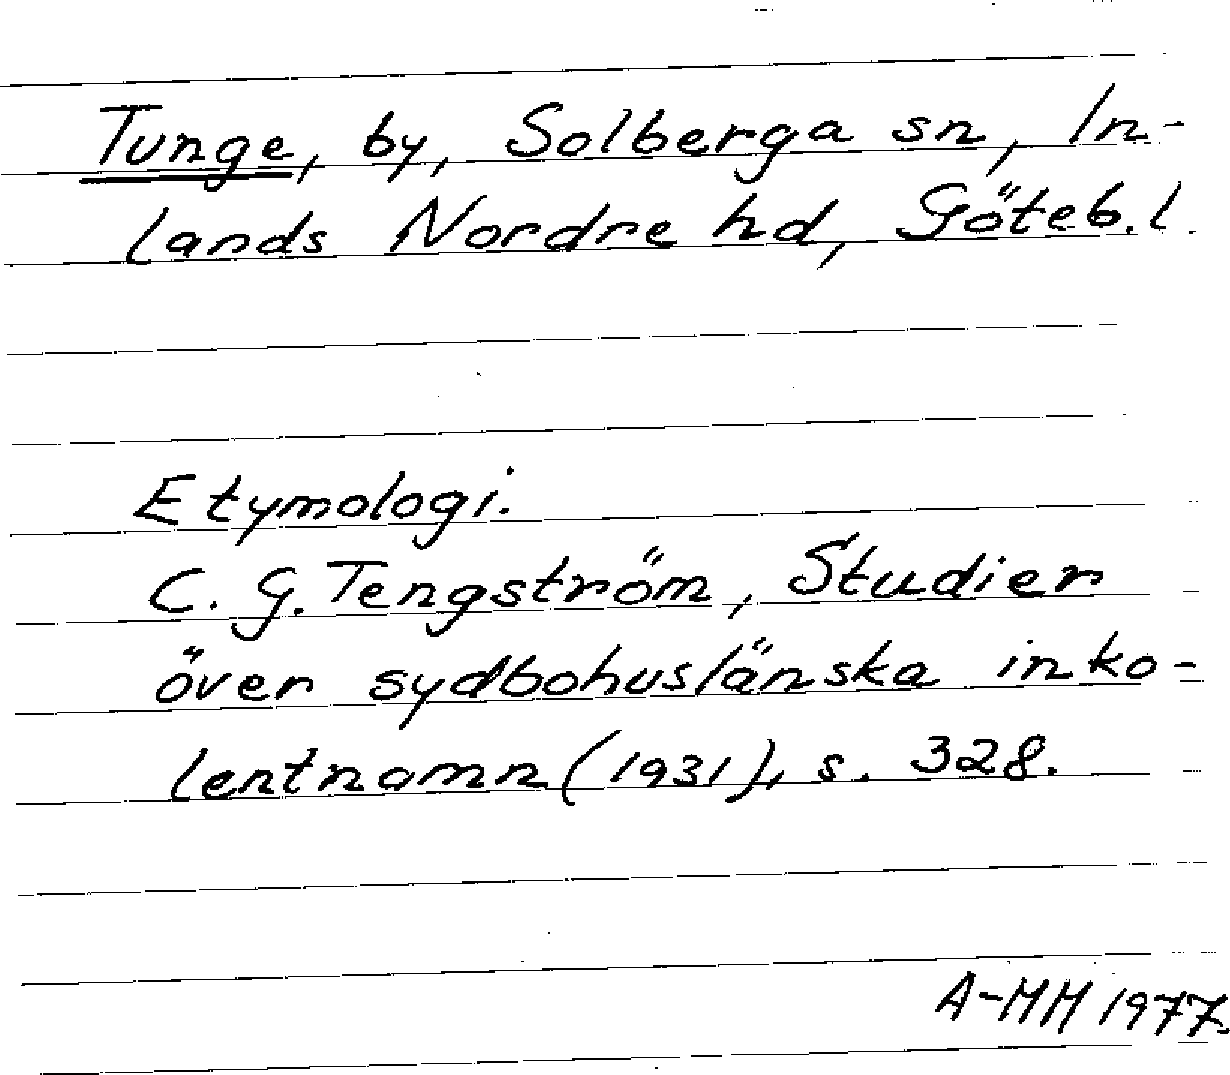 Tunge, by, Solberga sn, In-
lands Nordre hd, Göteb.l.
Etymologi.
C. G. Tengström, Studier
över sydbohuslänska inko-
lentnamn (1931), s. 328.
A-MM 1977.